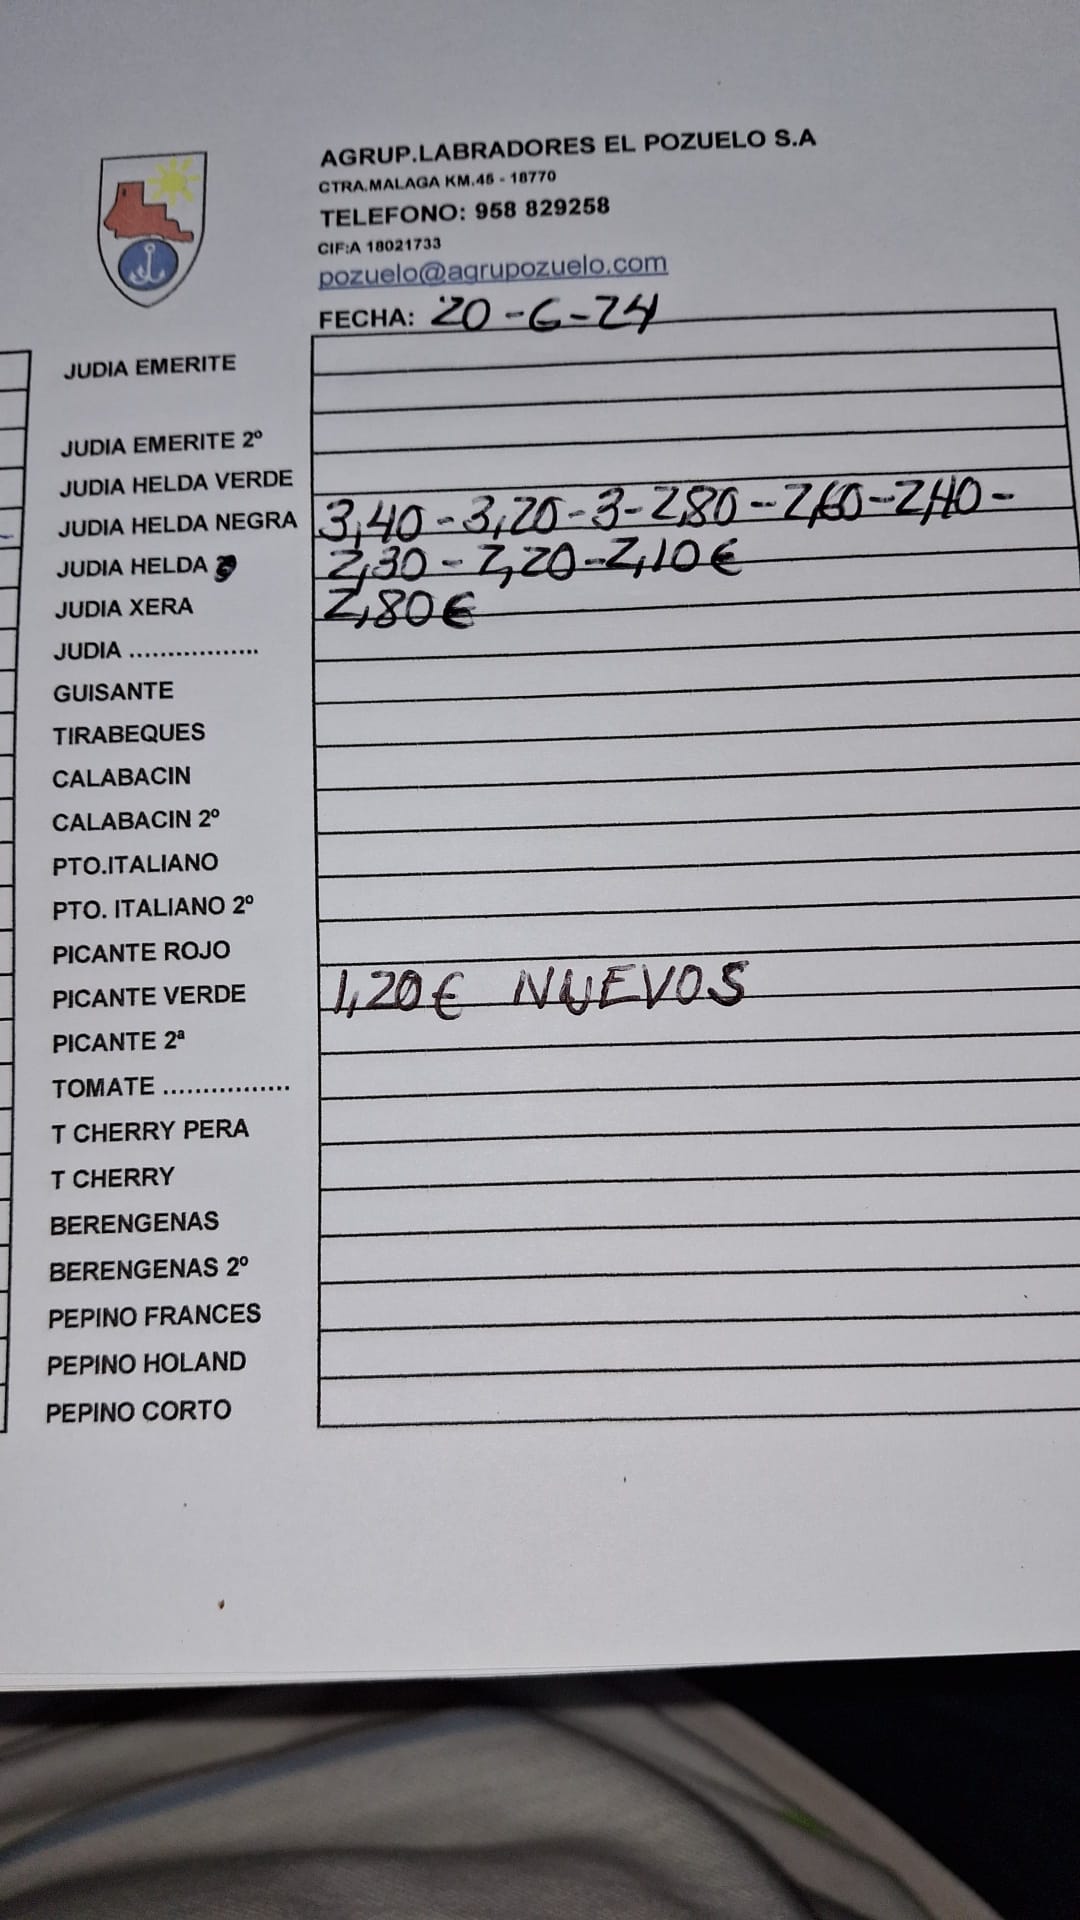 AGRUP.LABRADORES EL POZUELO S.A
CTRA.MALAGA KM.45 - 18770
TELEFONO: 958 829258
CIF:A 18021733
pozuelo@agrupozuelo.com
FECHA: 20-6-24
JUDIA EMERITE
JUDIA EMERITE 2º
JUDIA HELDA VERDE
JUDIA HELDA NEGRA 3,40-3,20-3-2,80-2,60-2,40-
JUDIA HELDA 2,30-2,20-2,10€
JUDIA XERA 2,80€
JUDIA .................
GUISANTE
TIRABEQUES
CALABACIN
CALABACIN 2º
PTO.ITALIANO
PTO. ITALIANO 2º
PICANTE ROJO
PICANTE VERDE 1,20€ NUEVOS
PICANTE 2ª
TOMATE ................
T CHERRY PERA
T CHERRY
BERENGENAS
BERENGENAS 2º
PEPINO FRANCES
PEPINO HOLAND
PEPINO CORTO